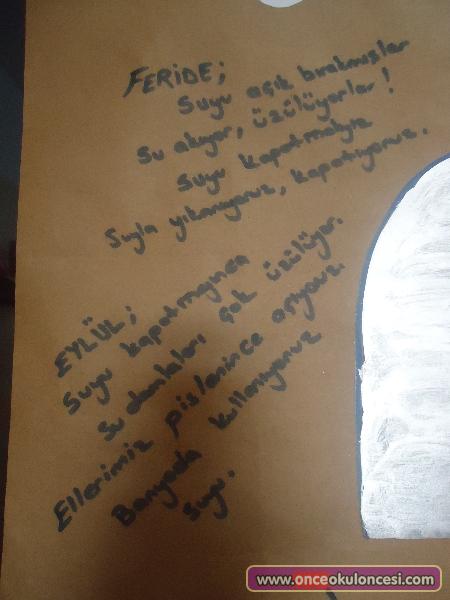 FERİDE;
Suyu açık bırakmışlar
Su akıyor, üzülüyorlar!
Suyu kapatmalıyız
Suyla yıkanıyoruz, kapatıyoruz.
EYLÜL;
Suyu kapatmayınca
Su damlaları çok üzülüyor.
Ellerimiz pislenince açıyoruz.
Banyoda kullanıyoruz
suyu.
www.onceokuloncesi.com